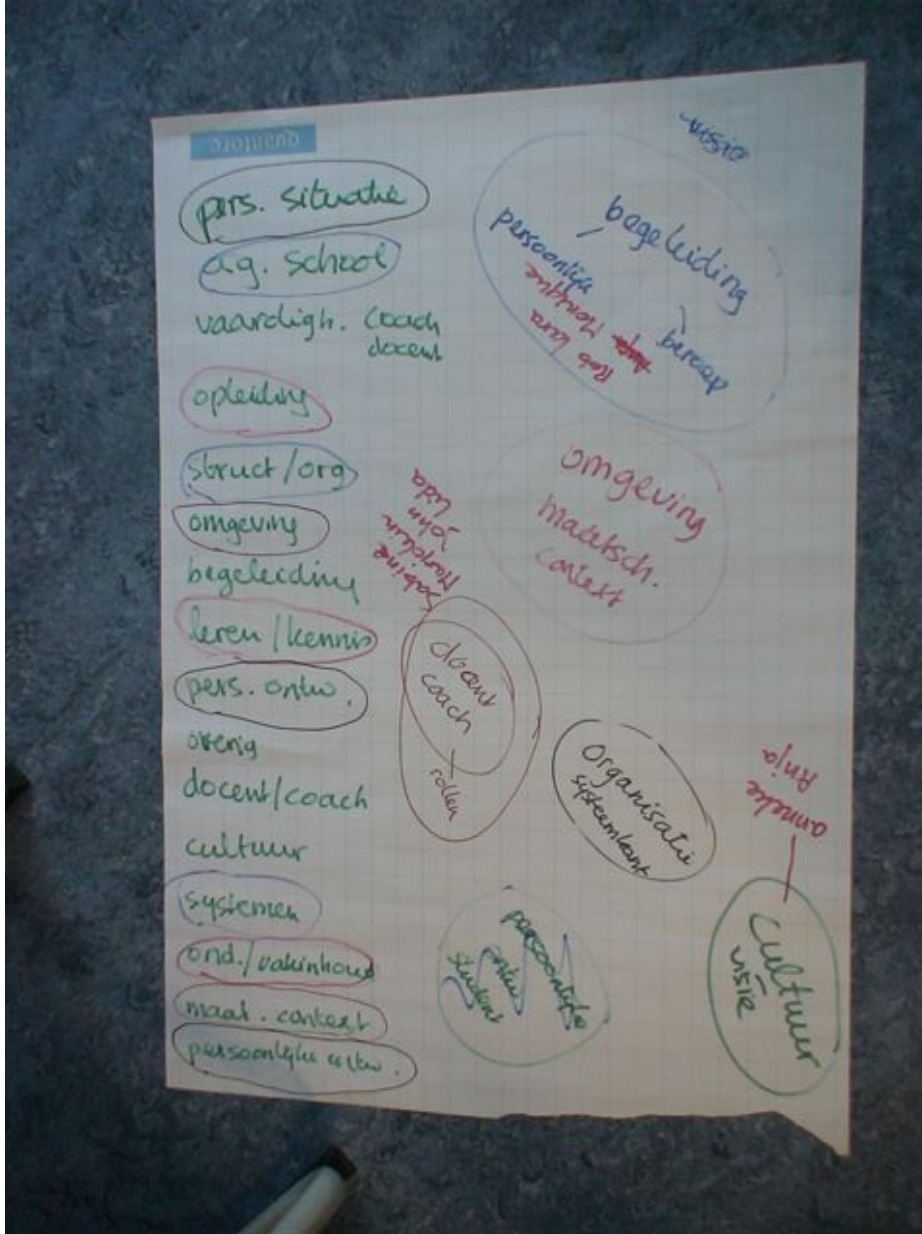 quantore
pers. situatie
ag. school
vaardigh. coach
docent
opleiding
struct/org
omgeving
begeleiding
leren/kennis
pers. ontw.
overig
docent/coach
cultuur
systemen
ond./vakinhoud
maat. context
persoonlijke ontw.
visie
begeleiding
persoonlijk
beroep
Monique
Rob Lara
omgeving
maatsch.
context
Sabine
Marjolein
John
Lida
docent
coach
rollen
organisatie
systeemkant
anneke
Anja
cultuur
visie
persoonlijke
ontw
student